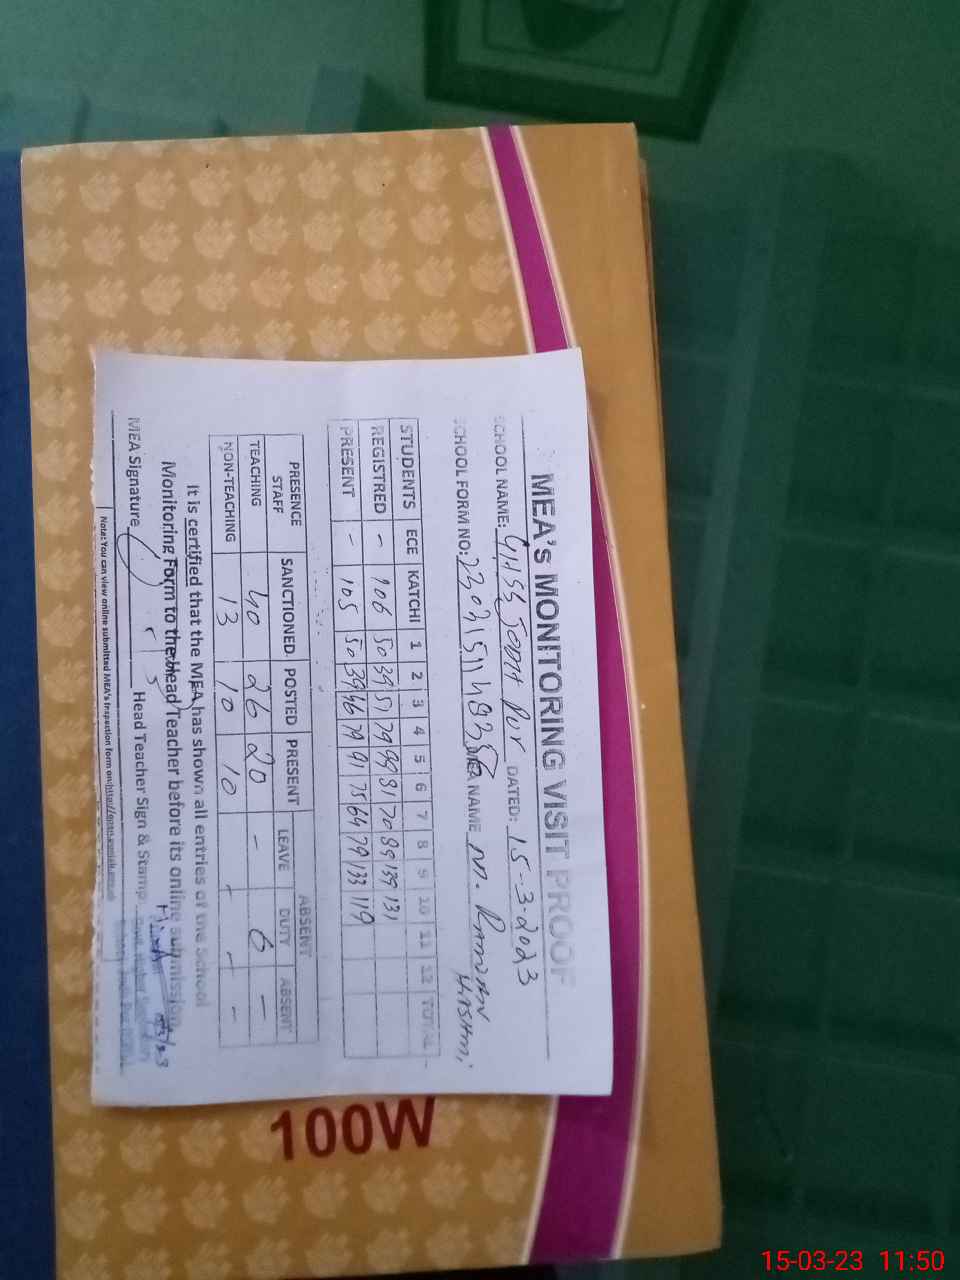 MEA's MONITORING VISIT PROOF
SCHOOL NAME: GHSS JODH PUR DATED: 15-3-2023
SCHOOL FORM NO: MEA NAME M. RAMZAN HASHMI
STUDENTS ECE KATCHI 1 2 3 4 5 6 7 8 9 10 11 12 TOTAL
REGISTRED - 106 50 39 51 79 98 81 70 89 139 131
PRESENT - 105 50 39 46 79 91 75 64 79 133 119
PRESENCE STAFF SANCTIONED POSTED PRESENT ABSENT
LEAVE DUTY ABSENT
TEACHING 40 26 20 - 6 -
NON-TEACHING 13 10 10 - - -
It is certified that the MEA has shown all entries of the School
Monitoring Form to the Head Teacher before its online submission.
MEA Signature Head Teacher Sign & Stamp:
Note: You can view online submitted MEA's Inspection form on:
100W
15-03-23 11:50